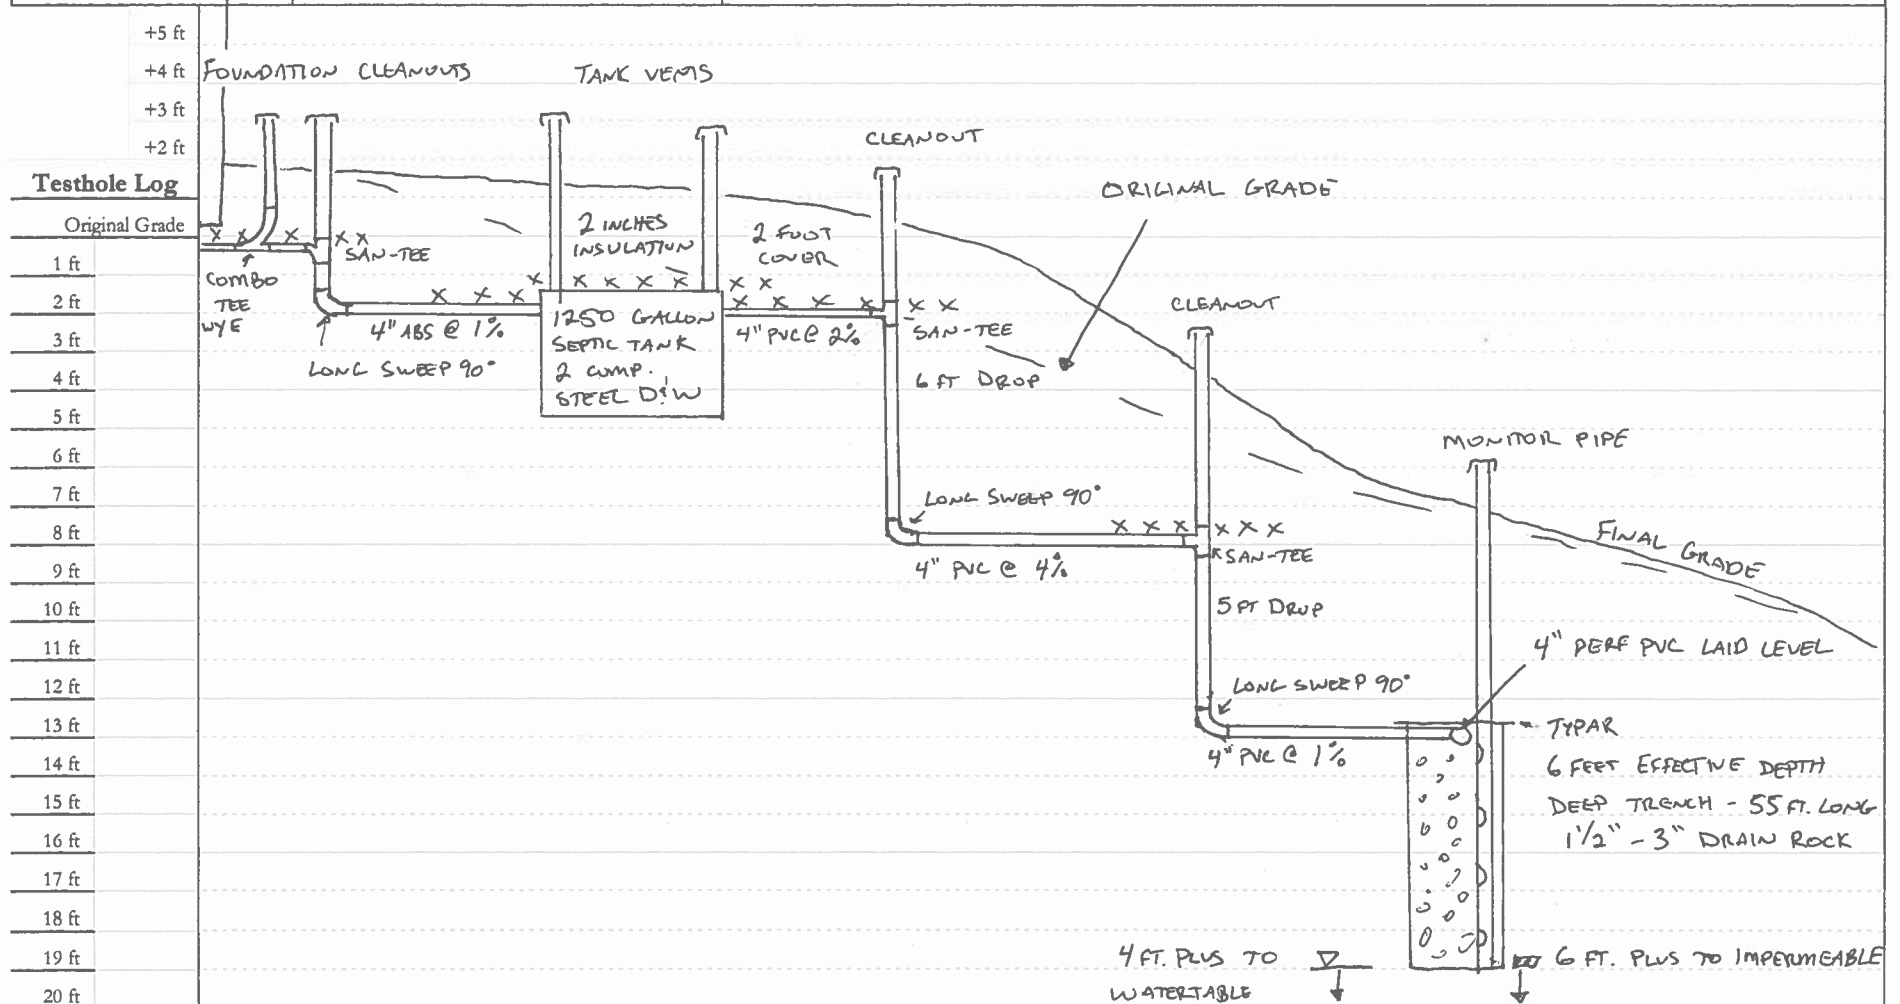 +5 ft
+4 ft
+3 ft
+2 ft
Testhole Log
Original Grade
1 ft
2 ft
3 ft
4 ft
5 ft
6 ft
7 ft
8 ft
9 ft
10 ft
11 ft
12 ft
13 ft
14 ft
15 ft
16 ft
17 ft
18 ft
19 ft
20 ft
FOUNDATION CLEANOUTS
TANK VENTS
CLEANOUT
ORIGINAL GRADE
2 INCHES
INSULATION
2 FOOT
COVER
SAN-TEE
COMBO
TEE
WYE
4" ABS @ 1%
LONG SWEEP 90°
1250 GALLON
SEPTIC TANK
2 COMP.
STEEL D&W
4" PVC @ 2%
SAN-TEE
6 FT DROP
CLEANOUT
MONITOR PIPE
LONG SWEEP 90°
4" PVC @ 4%
SAN-TEE
FINAL GRADE
5 FT DROP
4" PERF PVC LAID LEVEL
LONG SWEEP 90°
4" PVC @ 1%
TYPAR
6 FEET EFFECTIVE DEPTH
DEEP TRENCH - 55 FT. LONG
1 1/2" - 3" DRAIN ROCK
4 FT. PLUS TO
WATERTABLE
6 FT. PLUS TO IMPERMEABLE